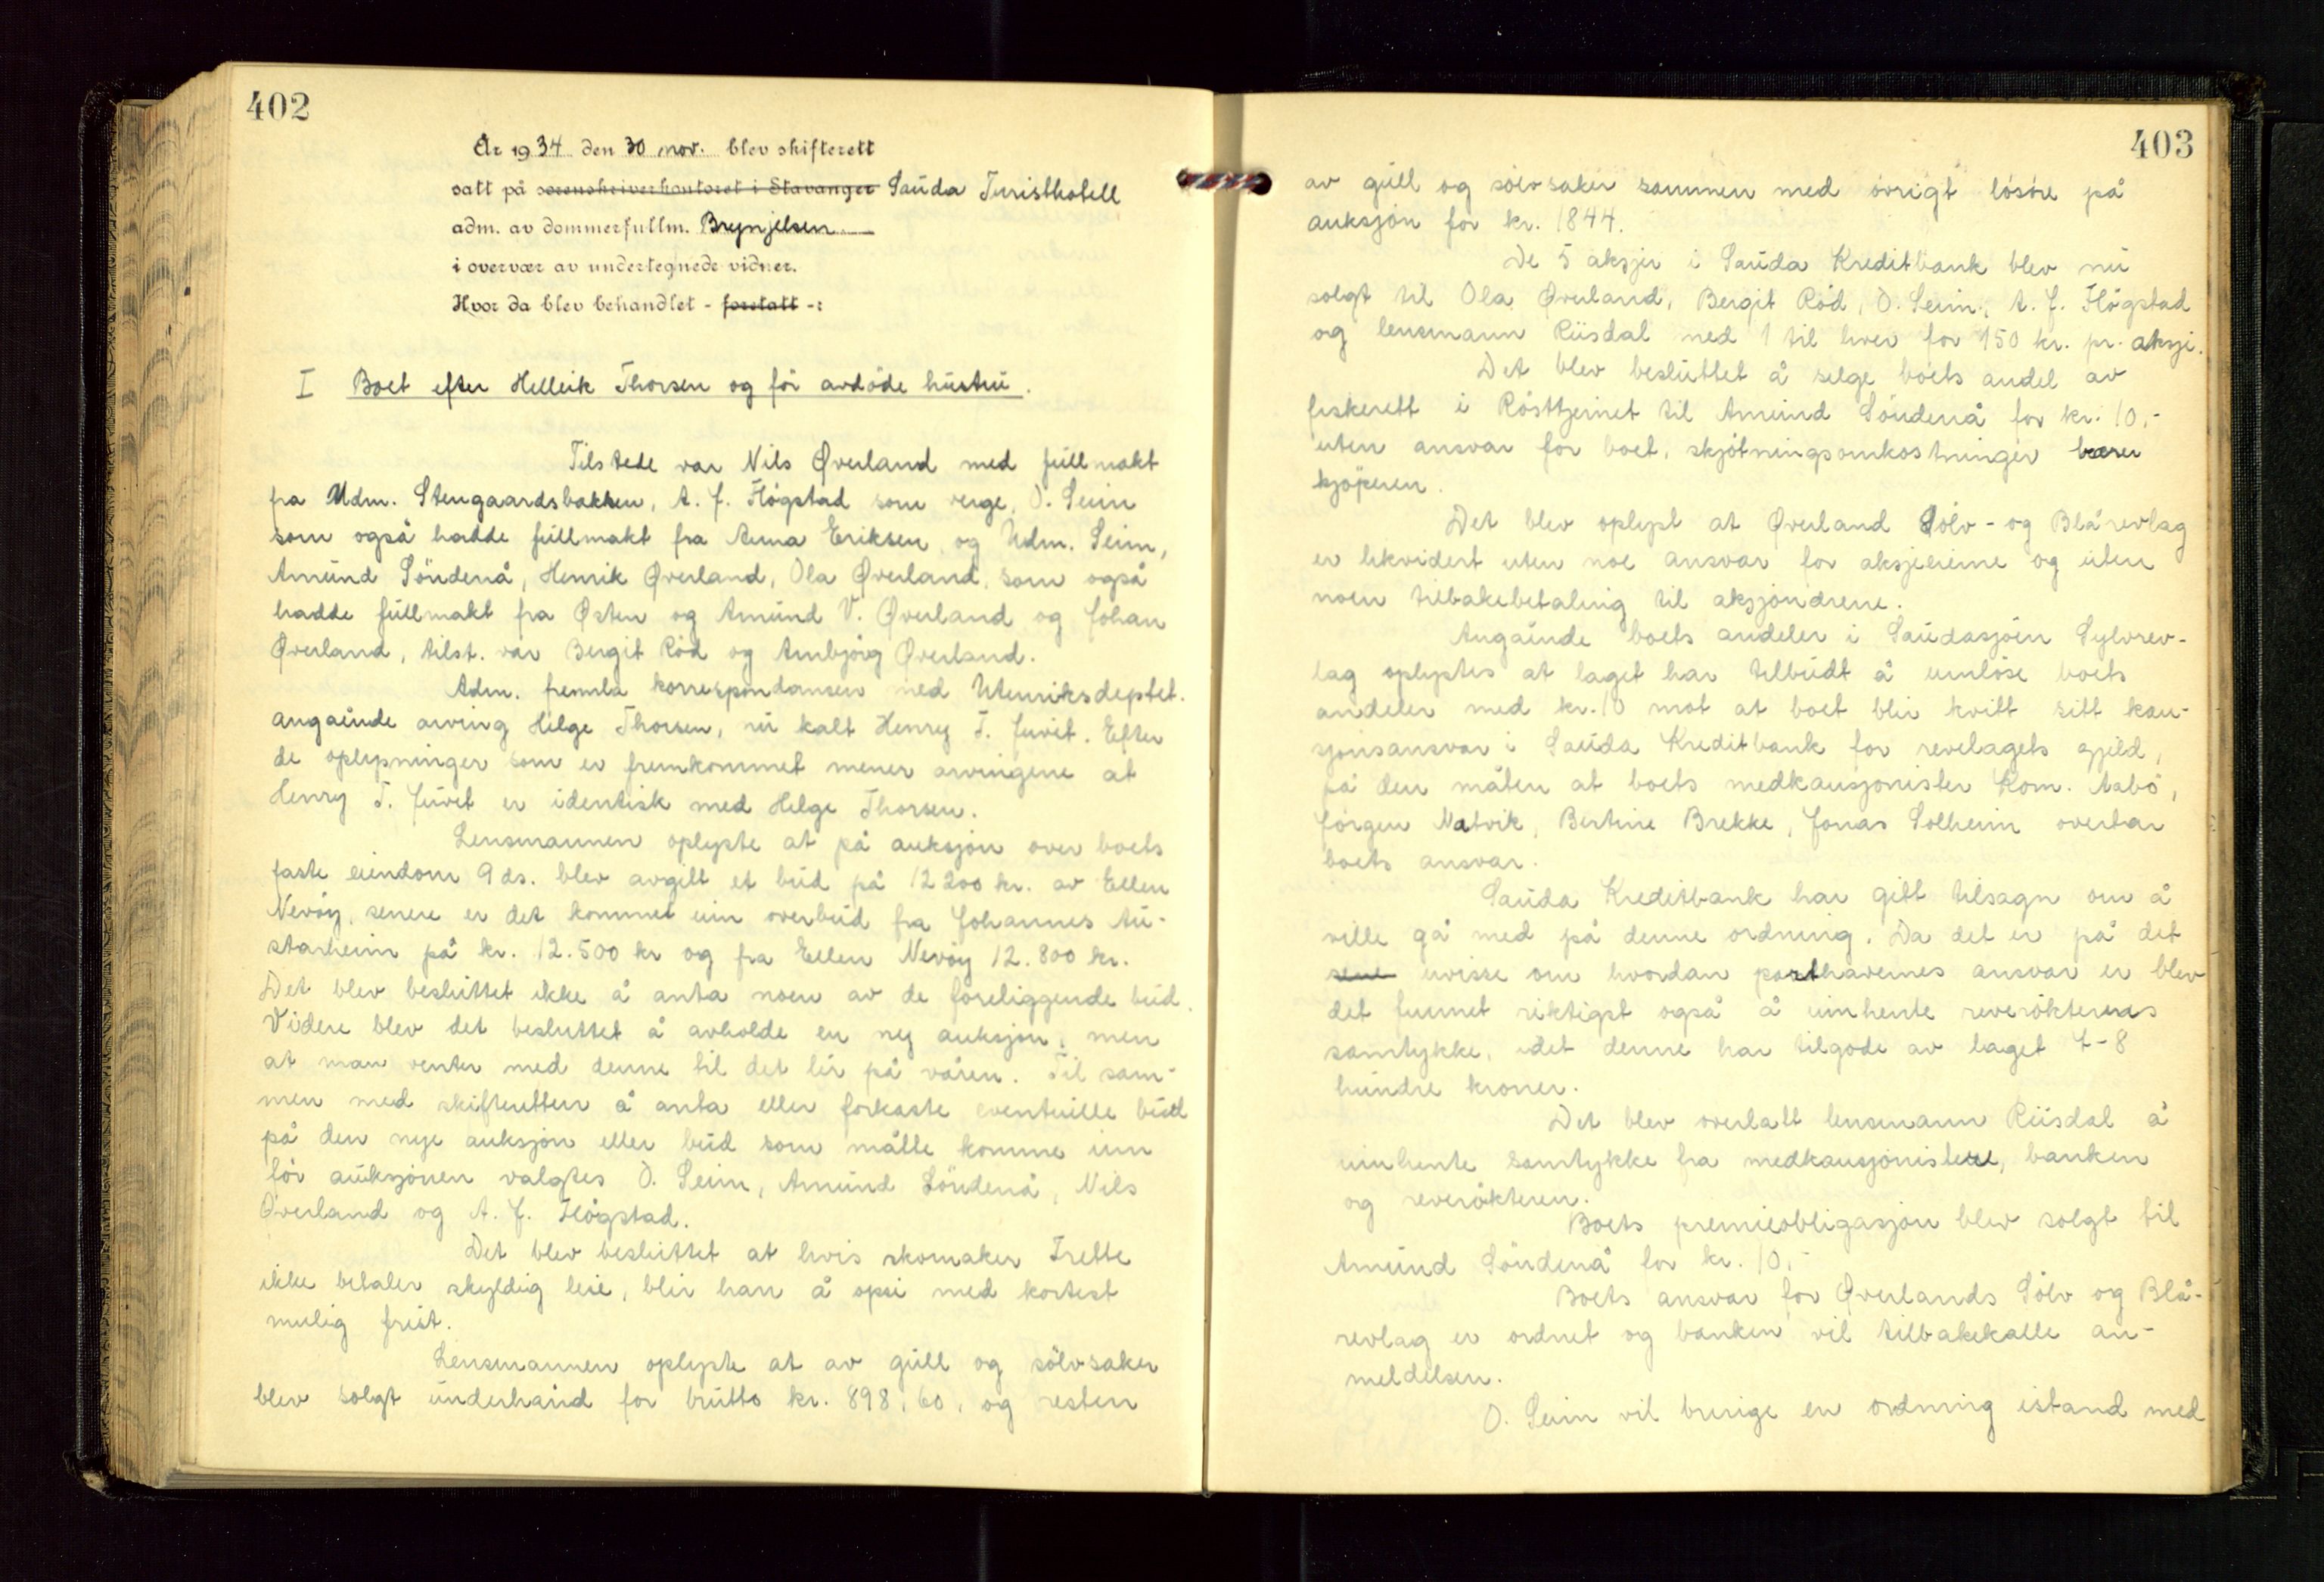 402
År 1934 den 30 nov. blev skifterett
satt på sorenskriverkontoret i Stavanger Sauda Turisthotell
adm. av dommerfullm. Brynjelsen
i overvær av undertegnede vidner.
Hvor da blev behandlet - foretatt -:
I Boet efter Helleik Thorsen og før avdøde hustru.
Tilstede var Nils Øverland med fullmakt
fra Mdm. Stengaardsbakken, A. J. Høgstad som verge, O. Seim
som også hadde fullmakt fra Anna Eriksen og Mdm. Seim,
Amund Söndenå, Henrik Øverland, Ola Øverland, som også
hadde fullmakt fra Østen og Amund V. Øverland og Johan
Øverland, tilst. var Bergit Röd og Ambjörg Øverland.
Adm. fremla korrespondansen med Utenriksdeptet.
angående arving Helge Thorsen, nu kalt Henry T. Juvet. Efter
de oplysninger som er fremkommet mener arvingene at
Henry T. Juvet er identisk med Helge Thorsen.
Lensmannen oplyste at på auksjon over boets
faste eiendom 9 ds. blev avgitt et bud på 12200 kr. av Ellen
Nevöy, senere er det kommet inn overbud fra Johannes Au-
starheim på kr. 12.500 kr og fra Ellen Nevöy 12.800 kr.
Det blev besluttet ikke å anta noen av de foreliggende bud.
Videre blev det besluttet å avholde en ny auksjon, men
at man venter med denne til det lir på våren. Til sam-
men med skifteretten å anta eller forkaste eventuelle bud
på den nye auksjon eller bud som måtte komme inn
för auksjonen valgtes O. Seim, Amund Söndenå, Nils
Överland og A. J. Högstad.
Det blev besluttet at hvis skomaker Trette
ikke betaler skyldig leie, blir han å opsi med kortest
mulig frist.
Lensmannen oplyste at av gull og sölvsaker
blev solgt underhånd for brutto kr. 898,60, og resten
403
av gull og sölvsaker sammen med övrigt lösöre på
auksjon for kr. 1844.
De 5 aksjer i Sauda Kreditbank blev nu
solgt til Ola Øverland, Bergit Röd, O. Seim, A. J. Högstad
og lensmann Riisdal med 1 til hver for 150 kr. pr. aksje.
Det blev besluttet å selge boets andel av
fiskerett i Rösttjernet til Amund Söndenå for kr. 10,-
uten ansvar for boet, skjötningsomkostninger bærer
kjöperen.
Det blev oplyst at Øverland Sölv- og Blårevlag
er likvidert uten noe ansvar for aksjeeierne og uten
noen tilbakebetaling til aksjonærene.
Angående boets andeler i Saudasjöen Sylvrev-
lag oplystes at laget har tilbudt å innlöse boets
andeler med kr. 10 mot at boet blir kvitt sitt kau-
sjonsansvar i Sauda Kreditbank for revelagets gjeld,
på den måten at boets medkausjonister Kom. Aabö,
Jörgen Natvik, Bertine Brekke, Jonas Solheim overtar
boets ansvar.
Sauda Kreditbank har gitt tilsagn om å
ville gå med på denne ordning. Da det er på det
rene uvisse om hvordan parthavernes ansvar er blev
det funnet riktigst også å innhente reverökterens
samtykke, idet denne har tilgode av laget 7-8
hundre kroner.
Det blev overlatt lensmann Riisdal å
innhente samtykke fra medkausjonistene, banken
og reverökteren.
Boets premieobligasjon blev solgt til
Amund Söndenå for kr. 10,-
Boets ansvar for Øverlands Sölv og Blå-
revlag er ordnet og banken vil tilbakekalle an-
meldelsen.
O. Seim vil bringe en ordning istand med